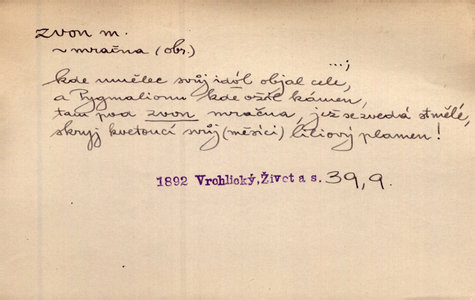 zvon m.
~ mračna (obr.)
...;
kde umělec svůj idól objal cele,
a Pygmalionu kde ožil kámen,
tam pod zvon mračna, jež se zvedá stmělé,
skryj kvetoucí svůj (měsíci) liliový plamen!
1892 Vrchlický, Život a s. 39, 9.